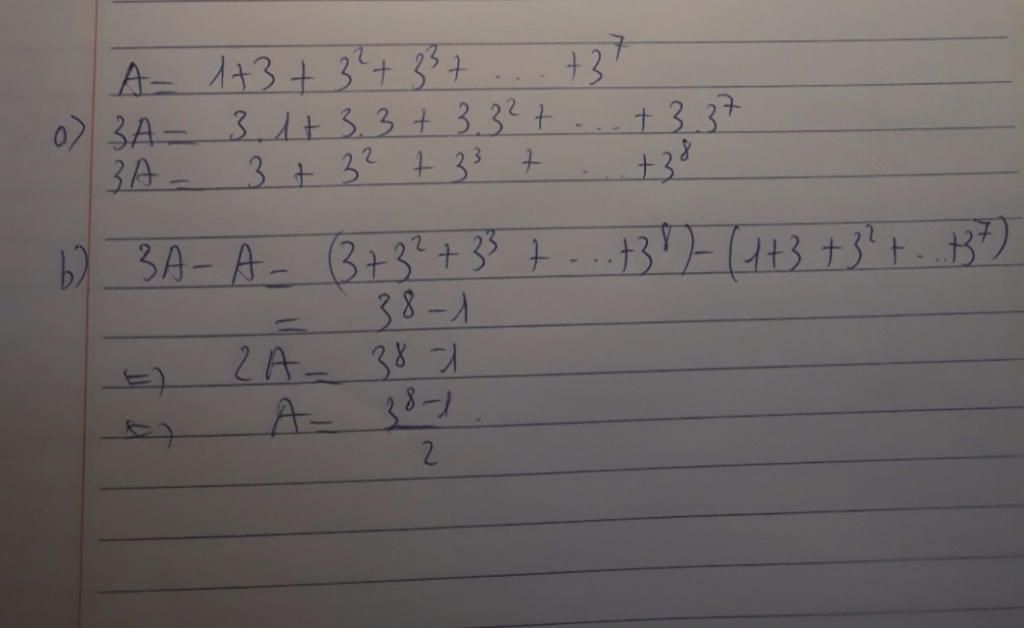 A = 1+3 + 3² + 3³ + ... +3⁷
a) 3A = 3.1 + 3.3 + 3.3² + ... + 3.3⁷
3A = 3 + 3² + 3³ + ... +3⁸
b) 3A - A = (3+3² +3³ + ...+3⁸) - (1+3 +3² + ...+3⁷)
= 3⁸ - 1
⇔ 2A = 3⁸ - 1
⇔ A = 3⁸ - 1 .
2